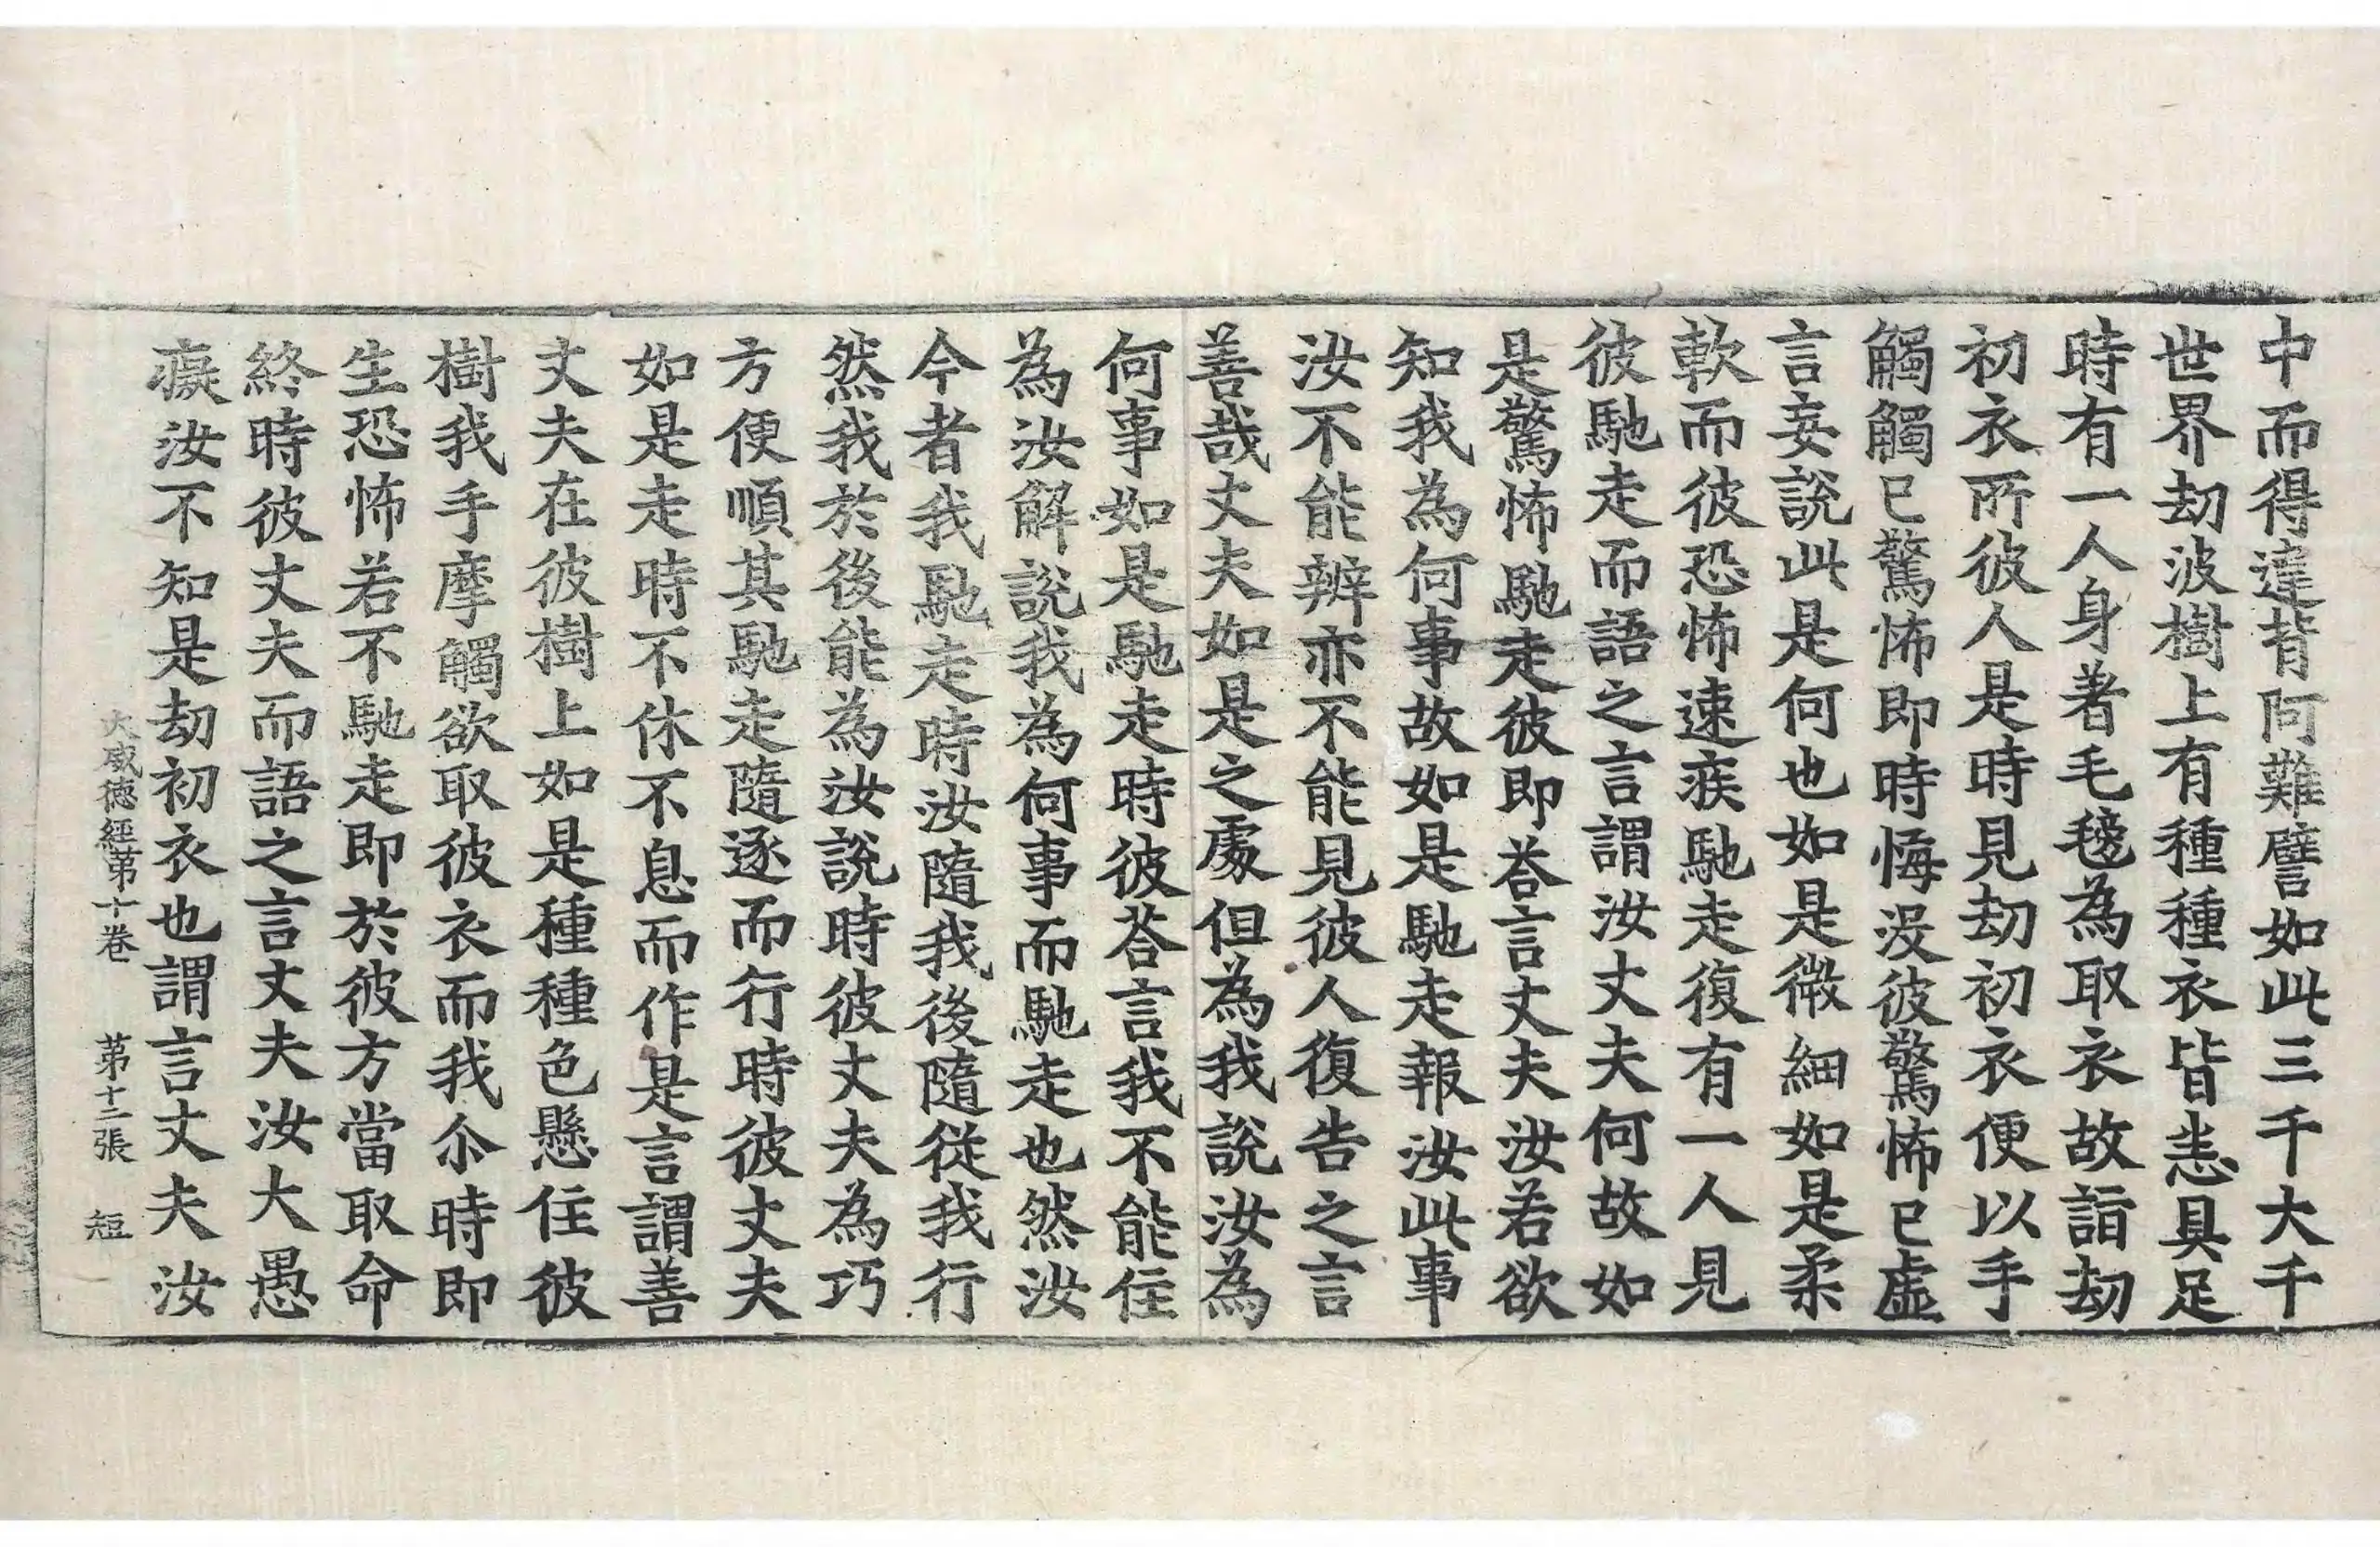 中而得違背阿難譬如此三千大千
世界劫波樹上有種種衣皆悉具足
時有一人身著毛毯為取衣故詣劫
初衣所彼人是時見劫初衣便以手
觸觸已驚怖即時悔沒彼驚怖已虛
言妄說此是何也如是微細如是柔
軟而彼恐怖速疾馳走復有一人見
彼馳走而語之言謂汝丈夫何故如
是驚怖馳走彼即荅言丈夫汝若欲
知我為何事故如是馳走報汝此事
汝不能辨亦不能見彼人復告之言
善哉丈夫如是之處但為我說汝為
何事如是馳走時彼荅言我不能住
為汝解說我為何事而馳走也然汝
今者我馳走時汝隨我後隨從我行
然我於後能為汝說時彼丈夫為巧
方便順其馳走隨逐而行時彼丈夫
如是走時不休不息而作是言謂善
丈夫在彼樹上如是種種色懸住彼
樹我手摩觸欲取彼衣而我尒時即
生恐怖若不馳走即於彼方當取命
終時彼丈夫而語之言丈夫汝大愚
癡汝不知是劫初衣也謂言丈夫汝
大威德經第十卷 第十二張 短